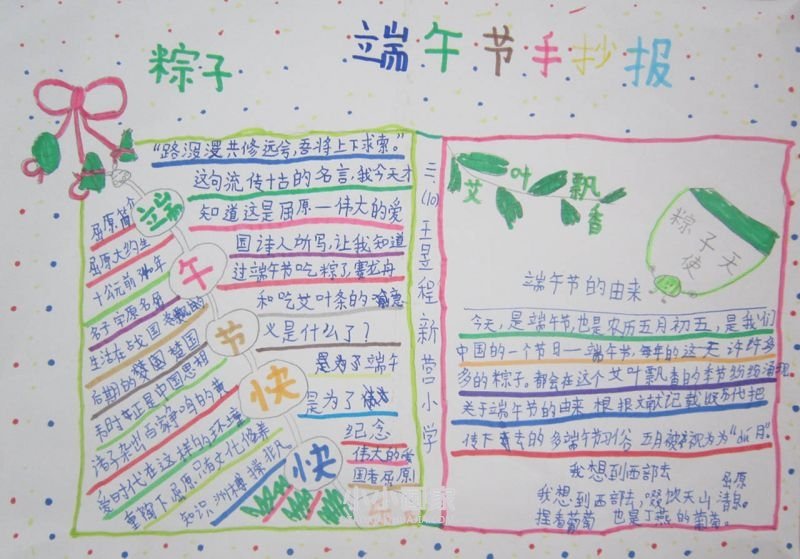 粽子
端午节手抄报
"路漫漫其修远兮,吾将上下求索。"
这句流传千古的名言,我今天才
知道这是屈原一伟大的爱
国诗人所写,让我知道
过端午节吃粽子赛龙舟
和吃艾叶条的寓意
义是什么了?
是为了端午
是为了
纪念
伟大的爱
国者屈原
端午节快快
屈原简介
屈原大约生
于公元前
名平字原名
生活在战国
后期的楚国 楚国
时 正是中国思想
诸子 出百家争鸣的
爱时代在这样的环境
重陶下屈原 文化修养
知识
三(10)王昱程新营小学
艾叶飘香
粽子天使
端午节的由来
今天,是端午节,也是农历五月初五,是我们
中国的一个节日一端午节,每年的这天 许许多
多的粽子。都会在这个艾叶飘香的季节纷纷涌现
关于端午节的由来 根据文献记载 历代把
传下 去的多端午习俗 五月被 视为为"du月"。
我想到西部去
屈原
我想到西部去,啜饮天山清息。
捏着葡萄 也是丁燕的葡萄。